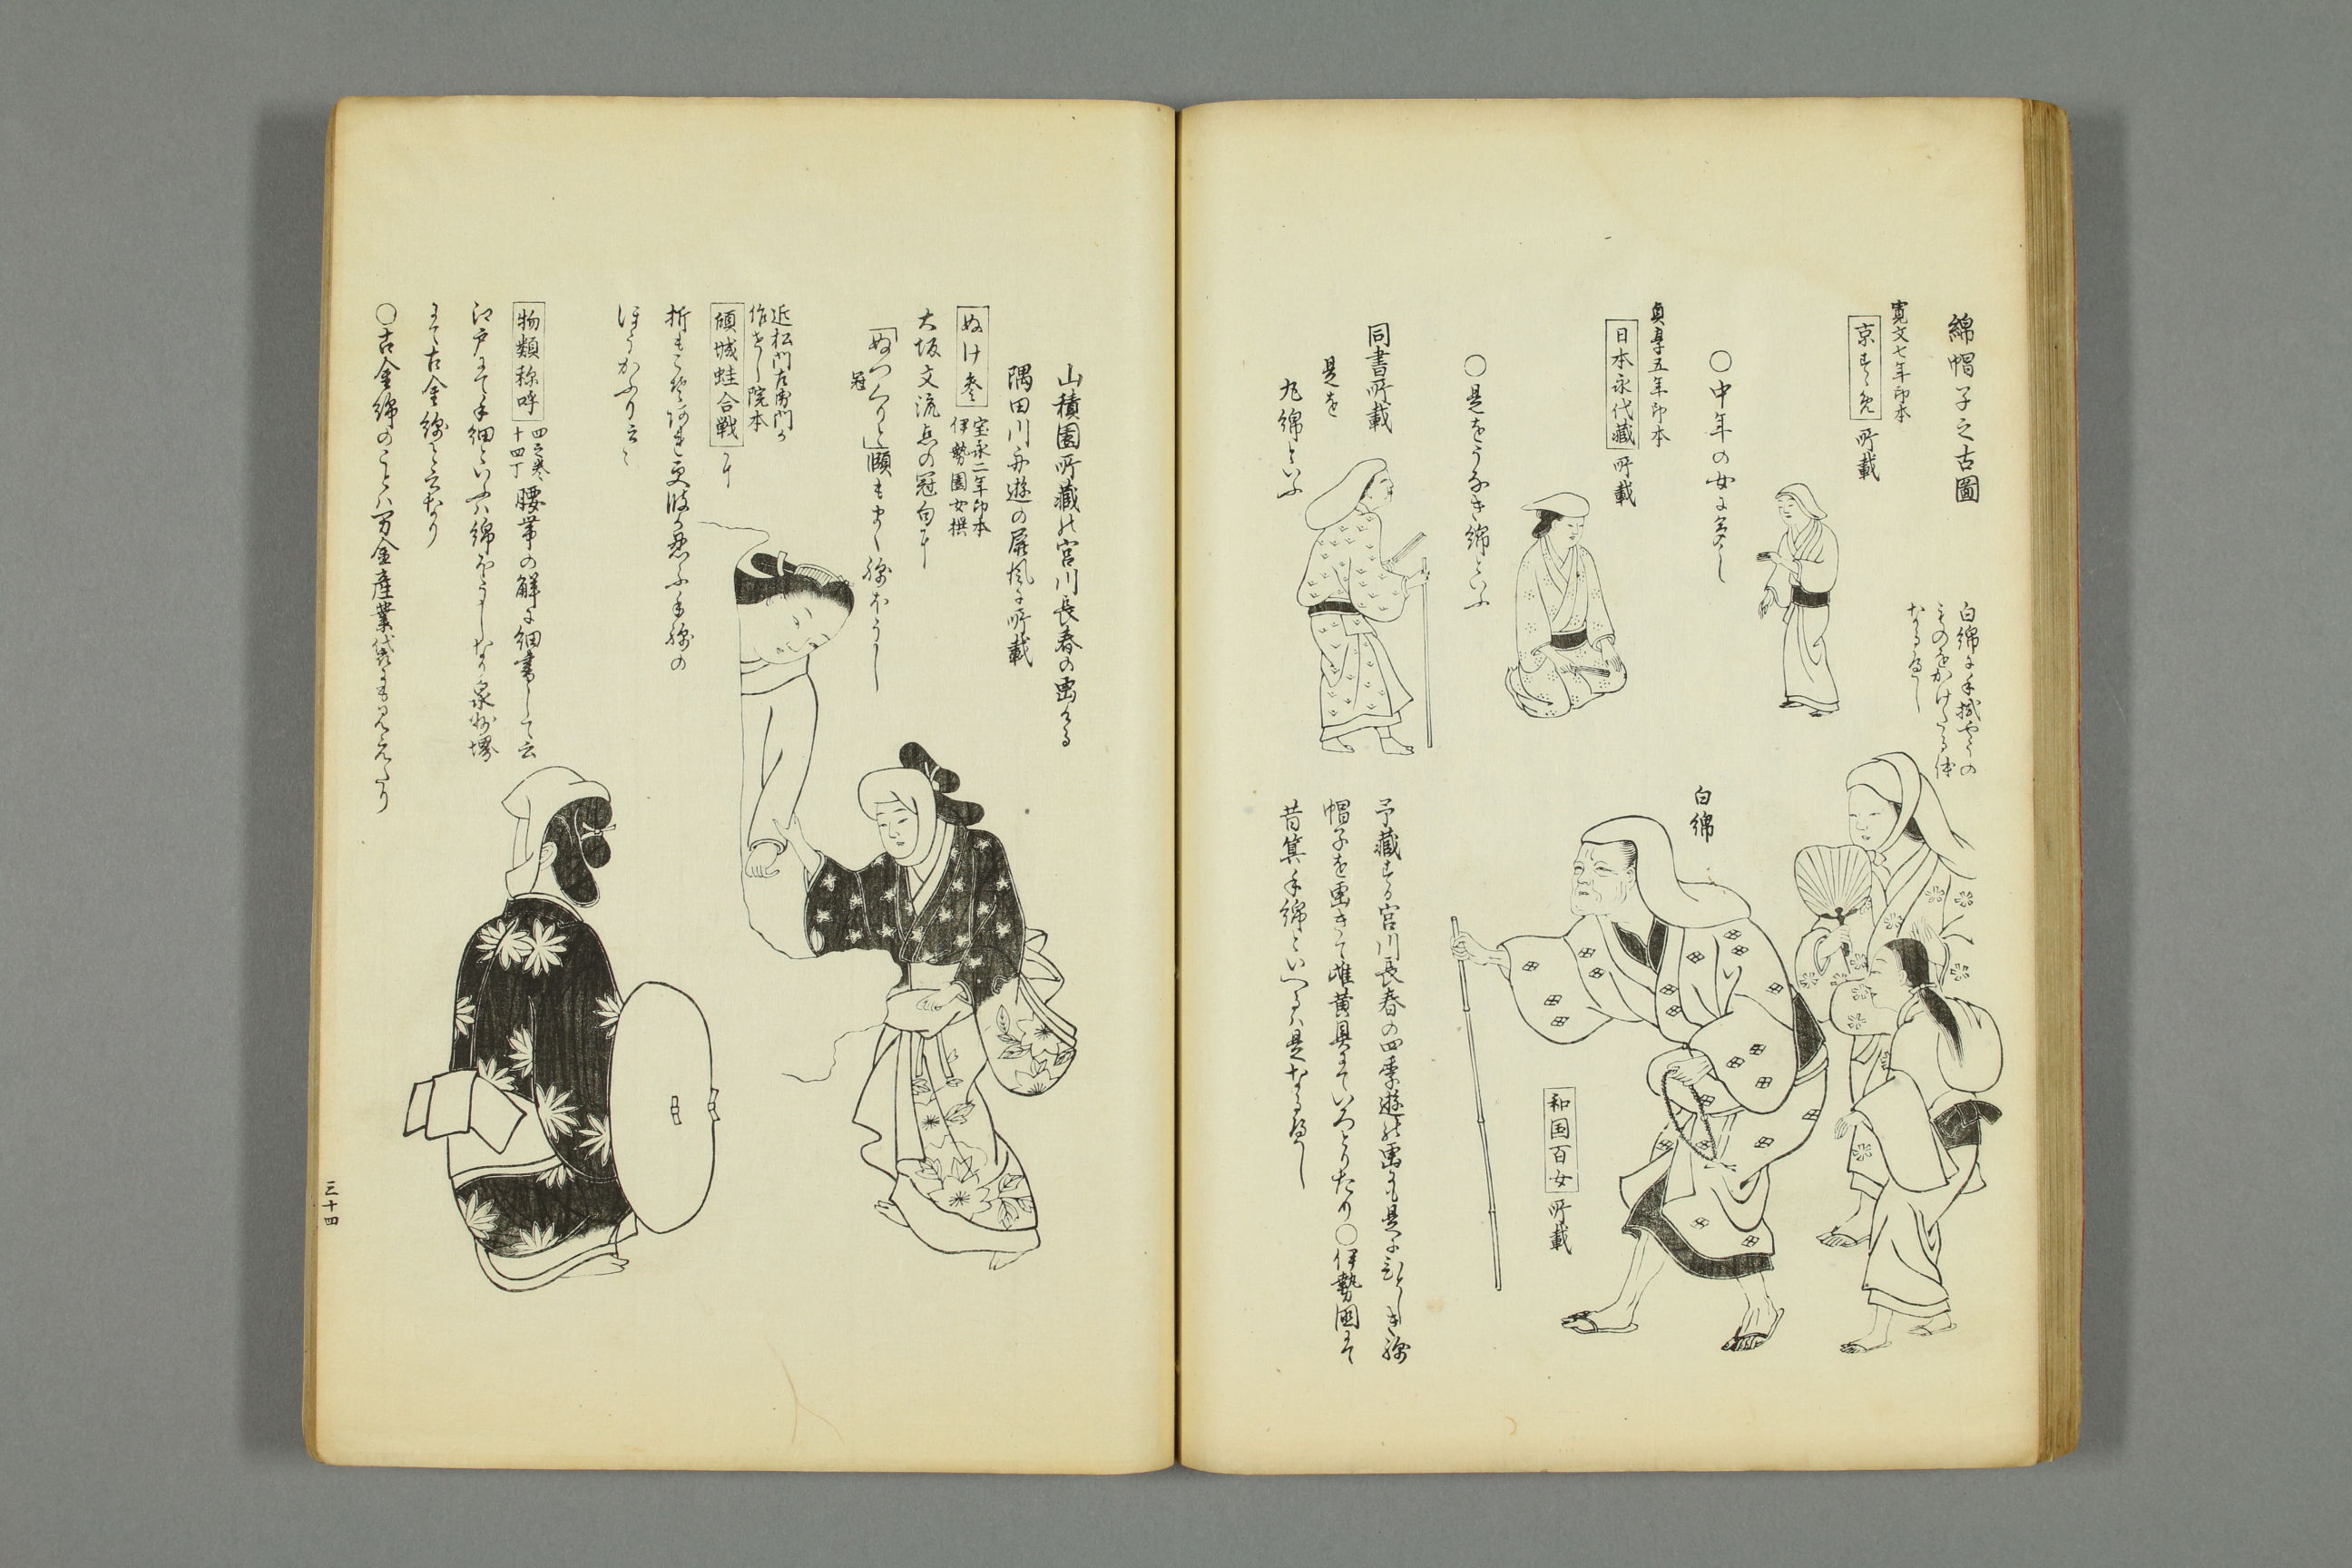 綿帽子之古圖
寛文七年印本
京すゞめ 所載
白綿に手拭やうの
ものをかけたる体
なるべし
○中年の女に多し
貞享五年印本
日本永代藏 所載
○是をうなき綿といふ
同書所載
是を
丸綿といふ
白綿
和国百女 所載
予藏する宮川長春の四季遊の畫にも是にひとしき綿
帽子を畫きて雌黄具にていろとりたり○伊勢國にて
昔箕手綿といへるは是なるべし
山積園所藏の宮川長春の畫ける
隅田川舟遊の屏風に所載
ぬけ参 宝永二年印本
伊勢園女撰
大坂文流点の冠句に
「ぬつくりと」順もまく綿ほうし
冠
近松門左衛門が
作せし院本
傾城蛙合戦 に
折もこそあれ更級が忍ふ手綿の
ほうかふり云々
物類称呼 四之巻
十四丁 腰帯の解に細書して云
江戸にて手細といふは綿ほうしなり泉州堺
にて古金綿と云なり
○古金綿のことは万金産業袋にも見えたり
三十四